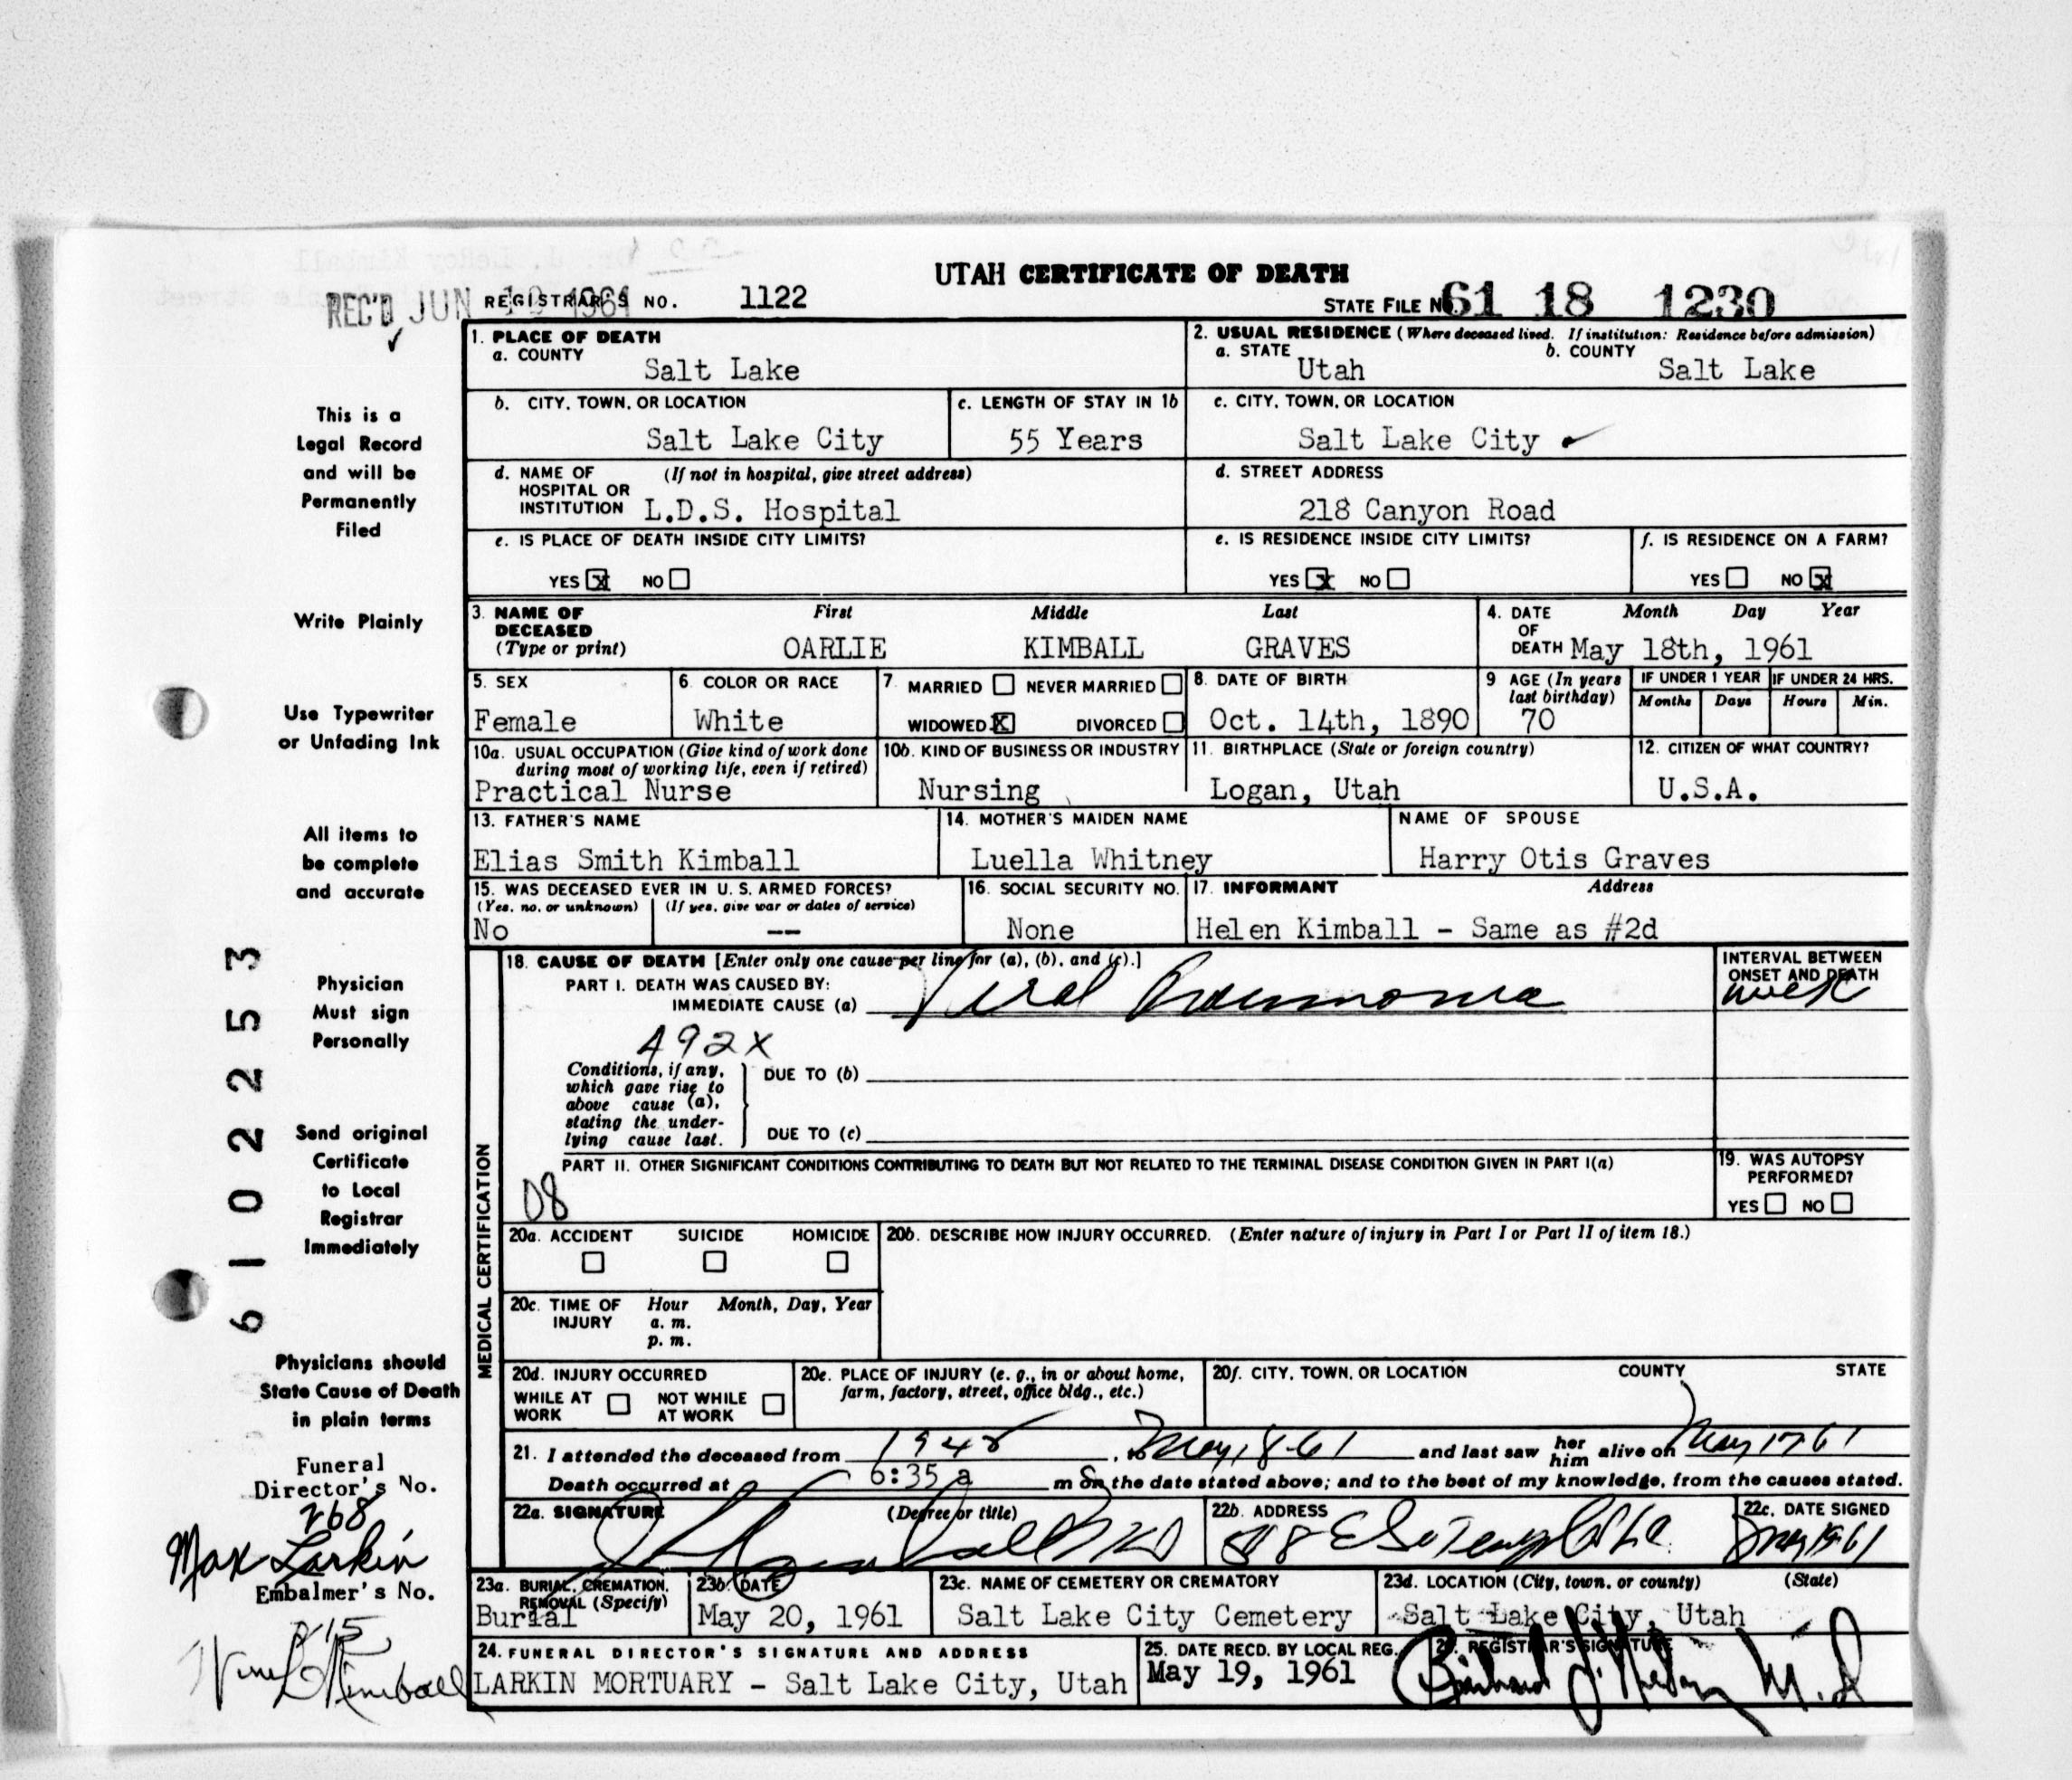 UTAH CERTIFICATE OF DEATH
REC'D JUN 19 1961
REGISTRAR'S NO. 1122
STATE FILE NO. 61 18 1230
This is a
Legal Record
and will be
Permanently
Filed
Write Plainly
Use Typewriter
or Unfading Ink
All items to
be complete
and accurate
Physician
Must sign
Personally
Send original
Certificate
to Local
Registrar
Immediately
Physicians should
State Cause of Death
in plain terms
Funeral
Director's No.
268
Max Larkin
Embalmer's No.
Kimball
6102253
1. PLACE OF DEATH
a. COUNTY
Salt Lake
2. USUAL RESIDENCE (Where deceased lived. If institution: Residence before admission)
a. STATE b. COUNTY
Utah Salt Lake
b. CITY, TOWN, OR LOCATION
Salt Lake City
c. LENGTH OF STAY IN 1b
55 Years
c. CITY, TOWN, OR LOCATION
Salt Lake City
d. NAME OF (If not in hospital, give street address)
HOSPITAL OR
INSTITUTION L.D.S. Hospital
d. STREET ADDRESS
218 Canyon Road
e. IS PLACE OF DEATH INSIDE CITY LIMITS?
YES X NO
e. IS RESIDENCE INSIDE CITY LIMITS?
YES X NO
f. IS RESIDENCE ON A FARM?
YES NO X
3. NAME OF First Middle Last
DECEASED
(Type or print) OARLIE KIMBALL GRAVES
4. DATE Month Day Year
OF
DEATH May 18th, 1961
5. SEX
Female
6. COLOR OR RACE
White
7 MARRIED NEVER MARRIED
WIDOWED X DIVORCED
8. DATE OF BIRTH
Oct. 14th, 1890
9 AGE (In years
last birthday)
70
IF UNDER 1 YEAR IF UNDER 24 HRS.
Months Days Hours Min.
10a. USUAL OCCUPATION (Give kind of work done
during most of working life, even if retired)
Practical Nurse
10b. KIND OF BUSINESS OR INDUSTRY
Nursing
11. BIRTHPLACE (State or foreign country)
Logan, Utah
12. CITIZEN OF WHAT COUNTRY?
U.S.A.
13. FATHER'S NAME
Elias Smith Kimball
14. MOTHER'S MAIDEN NAME
Luella Whitney
NAME OF SPOUSE
Harry Otis Graves
15. WAS DECEASED EVER IN U. S. ARMED FORCES?
(Yes, no, or unknown) (If yes, give war or dates of service)
No --
16. SOCIAL SECURITY NO.
None
17. INFORMANT Address
Helen Kimball - Same as #2d
MEDICAL CERTIFICATION
18. CAUSE OF DEATH [Enter only one cause per line for (a), (b), and (c).]
PART I. DEATH WAS CAUSED BY:
IMMEDIATE CAUSE (a) Viral Pneumonia
INTERVAL BETWEEN
ONSET AND DEATH
week
A92X
Conditions, if any,
which gave rise to
above cause (a),
stating the under-
lying cause last.
DUE TO (b)
DUE TO (c)
PART II. OTHER SIGNIFICANT CONDITIONS CONTRIBUTING TO DEATH BUT NOT RELATED TO THE TERMINAL DISEASE CONDITION GIVEN IN PART I(a)
08
19. WAS AUTOPSY
PERFORMED?
YES NO
20a. ACCIDENT SUICIDE HOMICIDE
20b. DESCRIBE HOW INJURY OCCURRED. (Enter nature of injury in Part I or Part II of item 18.)
20c. TIME OF Hour Month, Day, Year
INJURY a. m.
p. m.
20d. INJURY OCCURRED
WHILE AT NOT WHILE
WORK AT WORK
20e. PLACE OF INJURY (e. g., in or about home,
farm, factory, street, office bldg., etc.)
20f. CITY, TOWN, OR LOCATION COUNTY STATE
21. I attended the deceased from 1948, to May 18-61 and last saw her him alive on May 17 61
Death occurred at 6:35 a m on the date stated above; and to the best of my knowledge, from the causes stated.
22a. SIGNATURE (Degree or title)
Kimball MD
22b. ADDRESS
22c. DATE SIGNED
23a. BURIAL, CREMATION,
REMOVAL (Specify)
Burial
23b. DATE
May 20, 1961
23c. NAME OF CEMETERY OR CREMATORY
Salt Lake City Cemetery
23d. LOCATION (City, town, or county) (State)
Salt Lake City, Utah
24. FUNERAL DIRECTOR'S SIGNATURE AND ADDRESS
LARKIN MORTUARY - Salt Lake City, Utah
25. DATE RECD. BY LOCAL REG.
May 19, 1961
26. REGISTRAR'S SIGNATURE
M.D